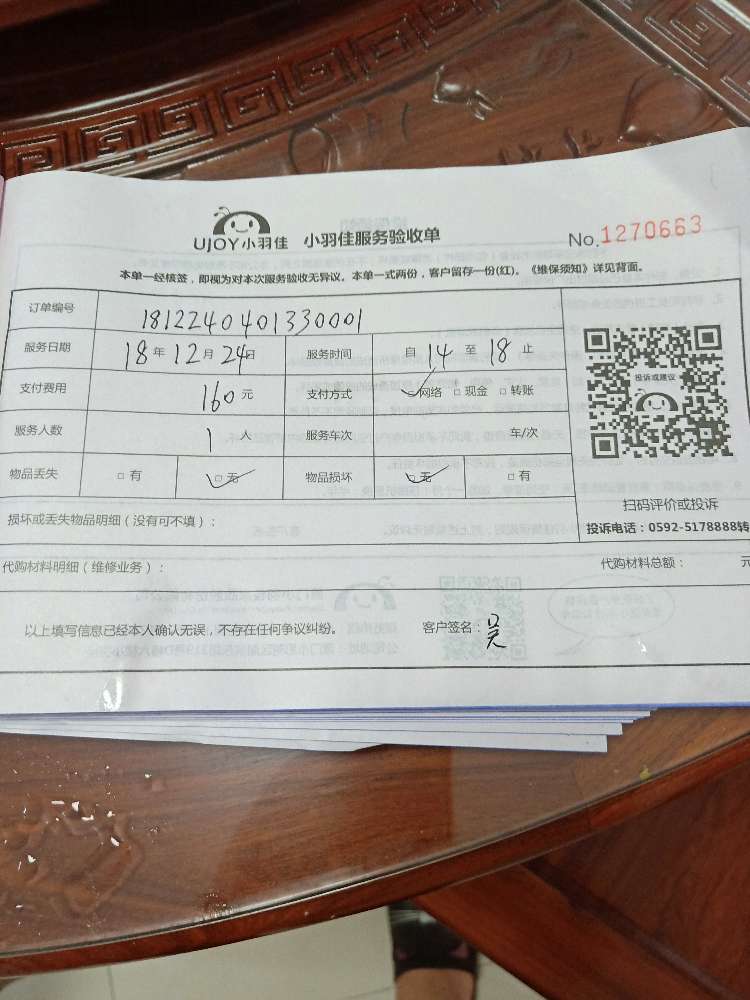 UJOY小羽佳 小羽佳服务验收单 No.1270663
本单一经核签，即视为对本次服务验收无异议。本单一式两份，客户留存一份(红)。《维保须知》详见背面。
订单编号 1812240401330001
服务日期 18年12月24日 服务时间 自14至18止
支付费用 160元 支付方式 □网络 □现金 □转账
服务人数 1人 服务车次 车/次
物品丢失 □有 □无 物品损坏 □无 □有
投诉或建议
扫码评价或投诉
投诉电话：0592-5178888转
损坏或丢失物品明细（没有可不填）：
代购材料明细（维修业务）： 代购材料总额： 元
以上填写信息已经本人确认无误，不存在任何争议纠纷。 客户签名：吴